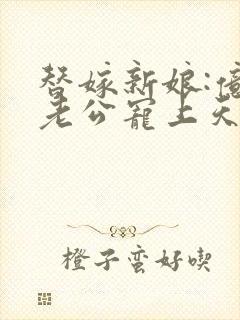 替嫁新娘:億
老公寵上天
橙子蛮好喫